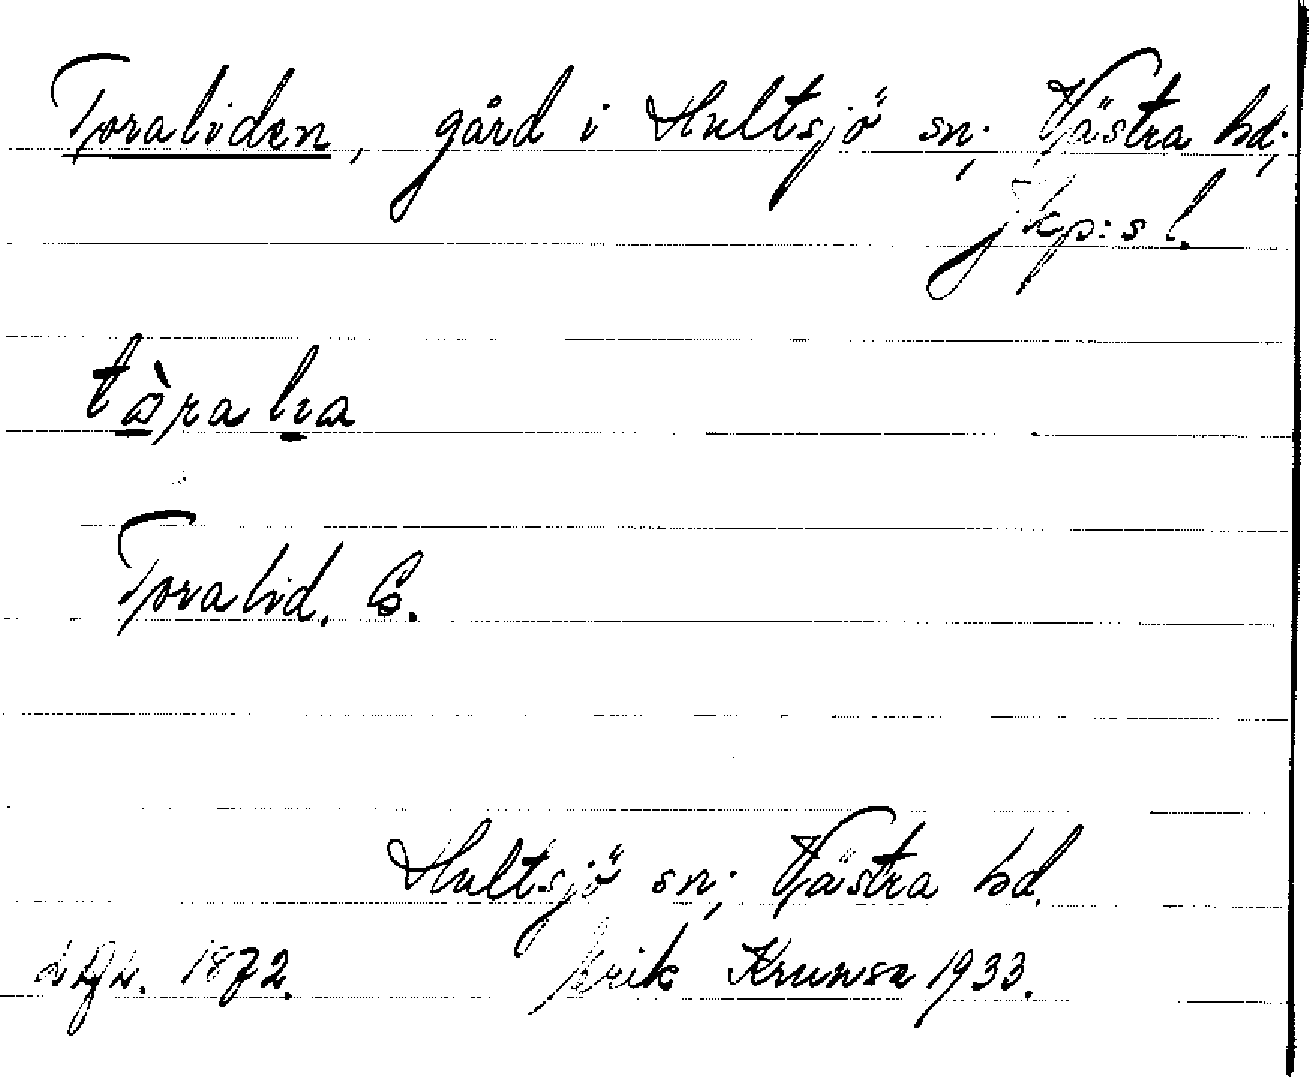 Toraliden, gård i Hultsjö sn; Västra hd;
Jkp:s l.
tàralia
Toralid. G.
Hultsjö sn; Västra hd.
1872. Erik Krunsa 1933.